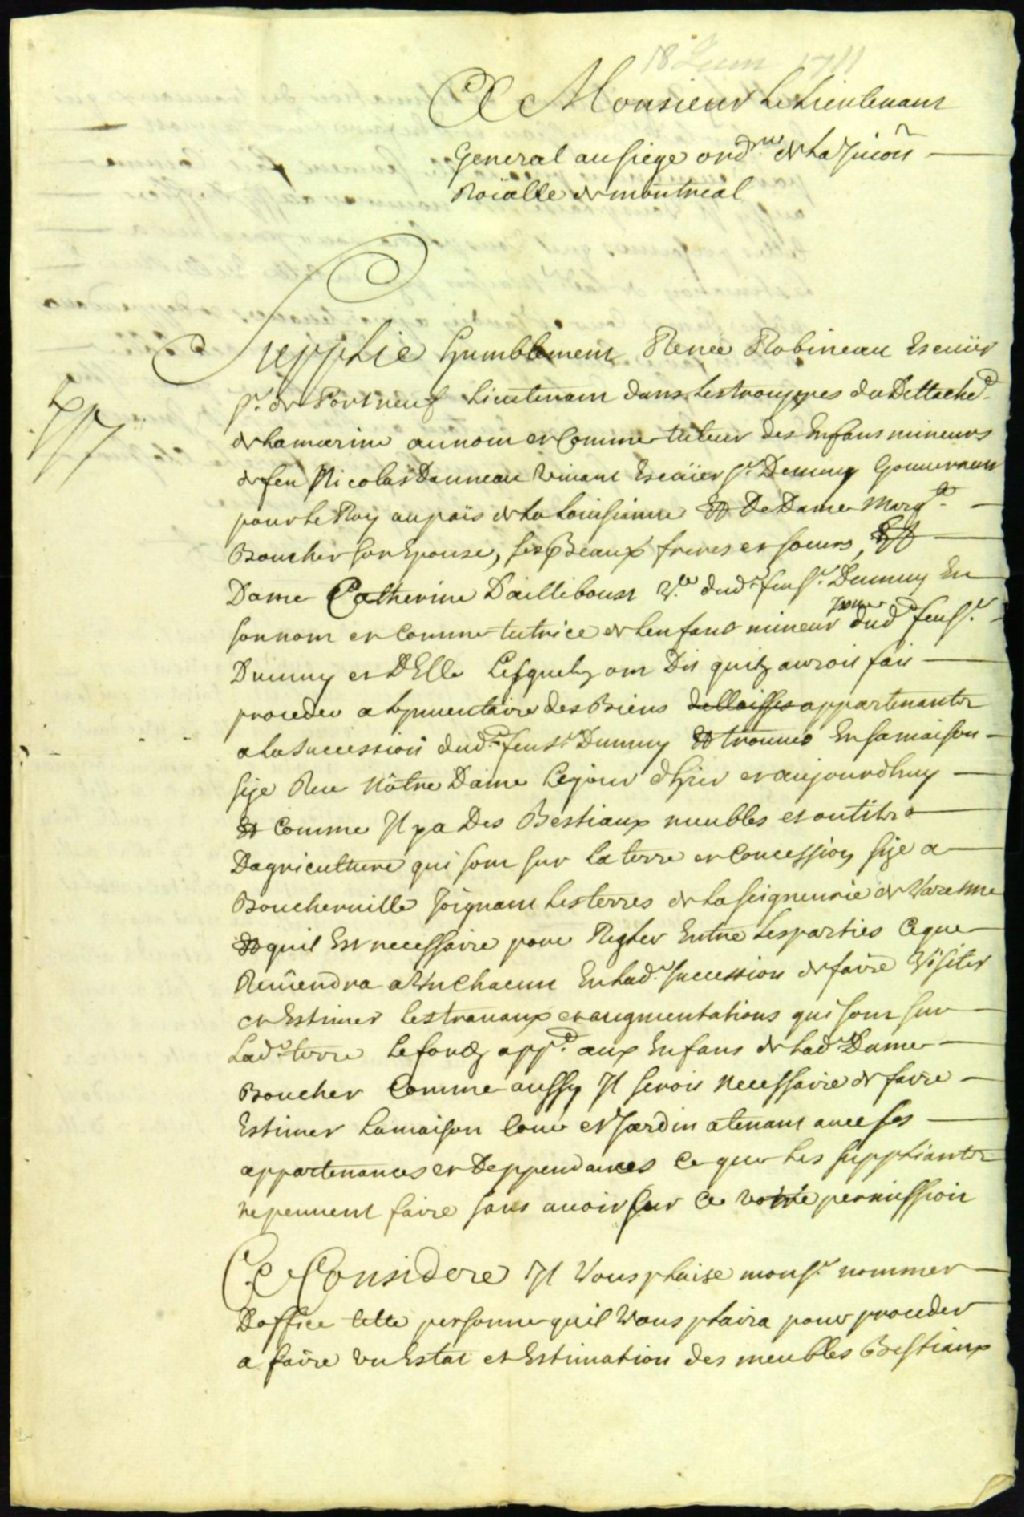 18 Juin 1711
A Monsieur Le Lieutenant
General au siege ord.re de La Juion
Roïalle de montreal
Supplie humblement René Robineau Escuier
Sr. de Portneuf Lieutenant dans Les trouppes du Dettachemd.
de La marine au nom et Comme tuteur des Enfans mineurs
de feu Nicolas Danneau vivant Escuier Sr. Demuy Gouverneur
pour Le Roy au païs de La Loüisianne Et De Dame Margte.
Boucher son Epouse, ses Beaux freres et soeurs, Et
Dame Catherine Daillebout Ve. dud. feu Sr. Demuy En
son nom et Comme tutrice de Lenfant mineur dud. feu Sr.
Dmuy et DElle Lesquelz ont Dit quilz auroit fait
proceder a Lynventaire des Biens dellaisses appartenante
a La succession dud. feu Sr. Dumuy Et trouués En sa maison
size Rue Nôtre Dame Le jour dhier et aujourdhuy
Et Comme Jl y a Des Bestiaux meubles et outils
Dagriculture qui sont sur La terre et Concession size a
Boucherville Joignant Les terres de La seigneurie de Varenne
Et quil Est necessaire pour Regler Entre Les parties Ce que
Reuiendra a Un Chacun En Lad. succession de faire Visiter
et Estimer Les trauaux et augmentations qui sont sur
Lad. terre Le fondz appt. aux Enfans de Lad. Dame
Boucher Comme aussy Jl seroit necessaire de faire
Estimer La maison Cour et Jardin atenant auec ses
appartenances et Deppendances Ce que Les suppliants
ne peuuent faire sans auoir sur Ce votre permission
Ce Consideré Jl Vous plaise monsr. nommer
Doffice telle personne quil Vous plaira pour proceder
a faire un Estat et Estimation des meubles Bestiaux